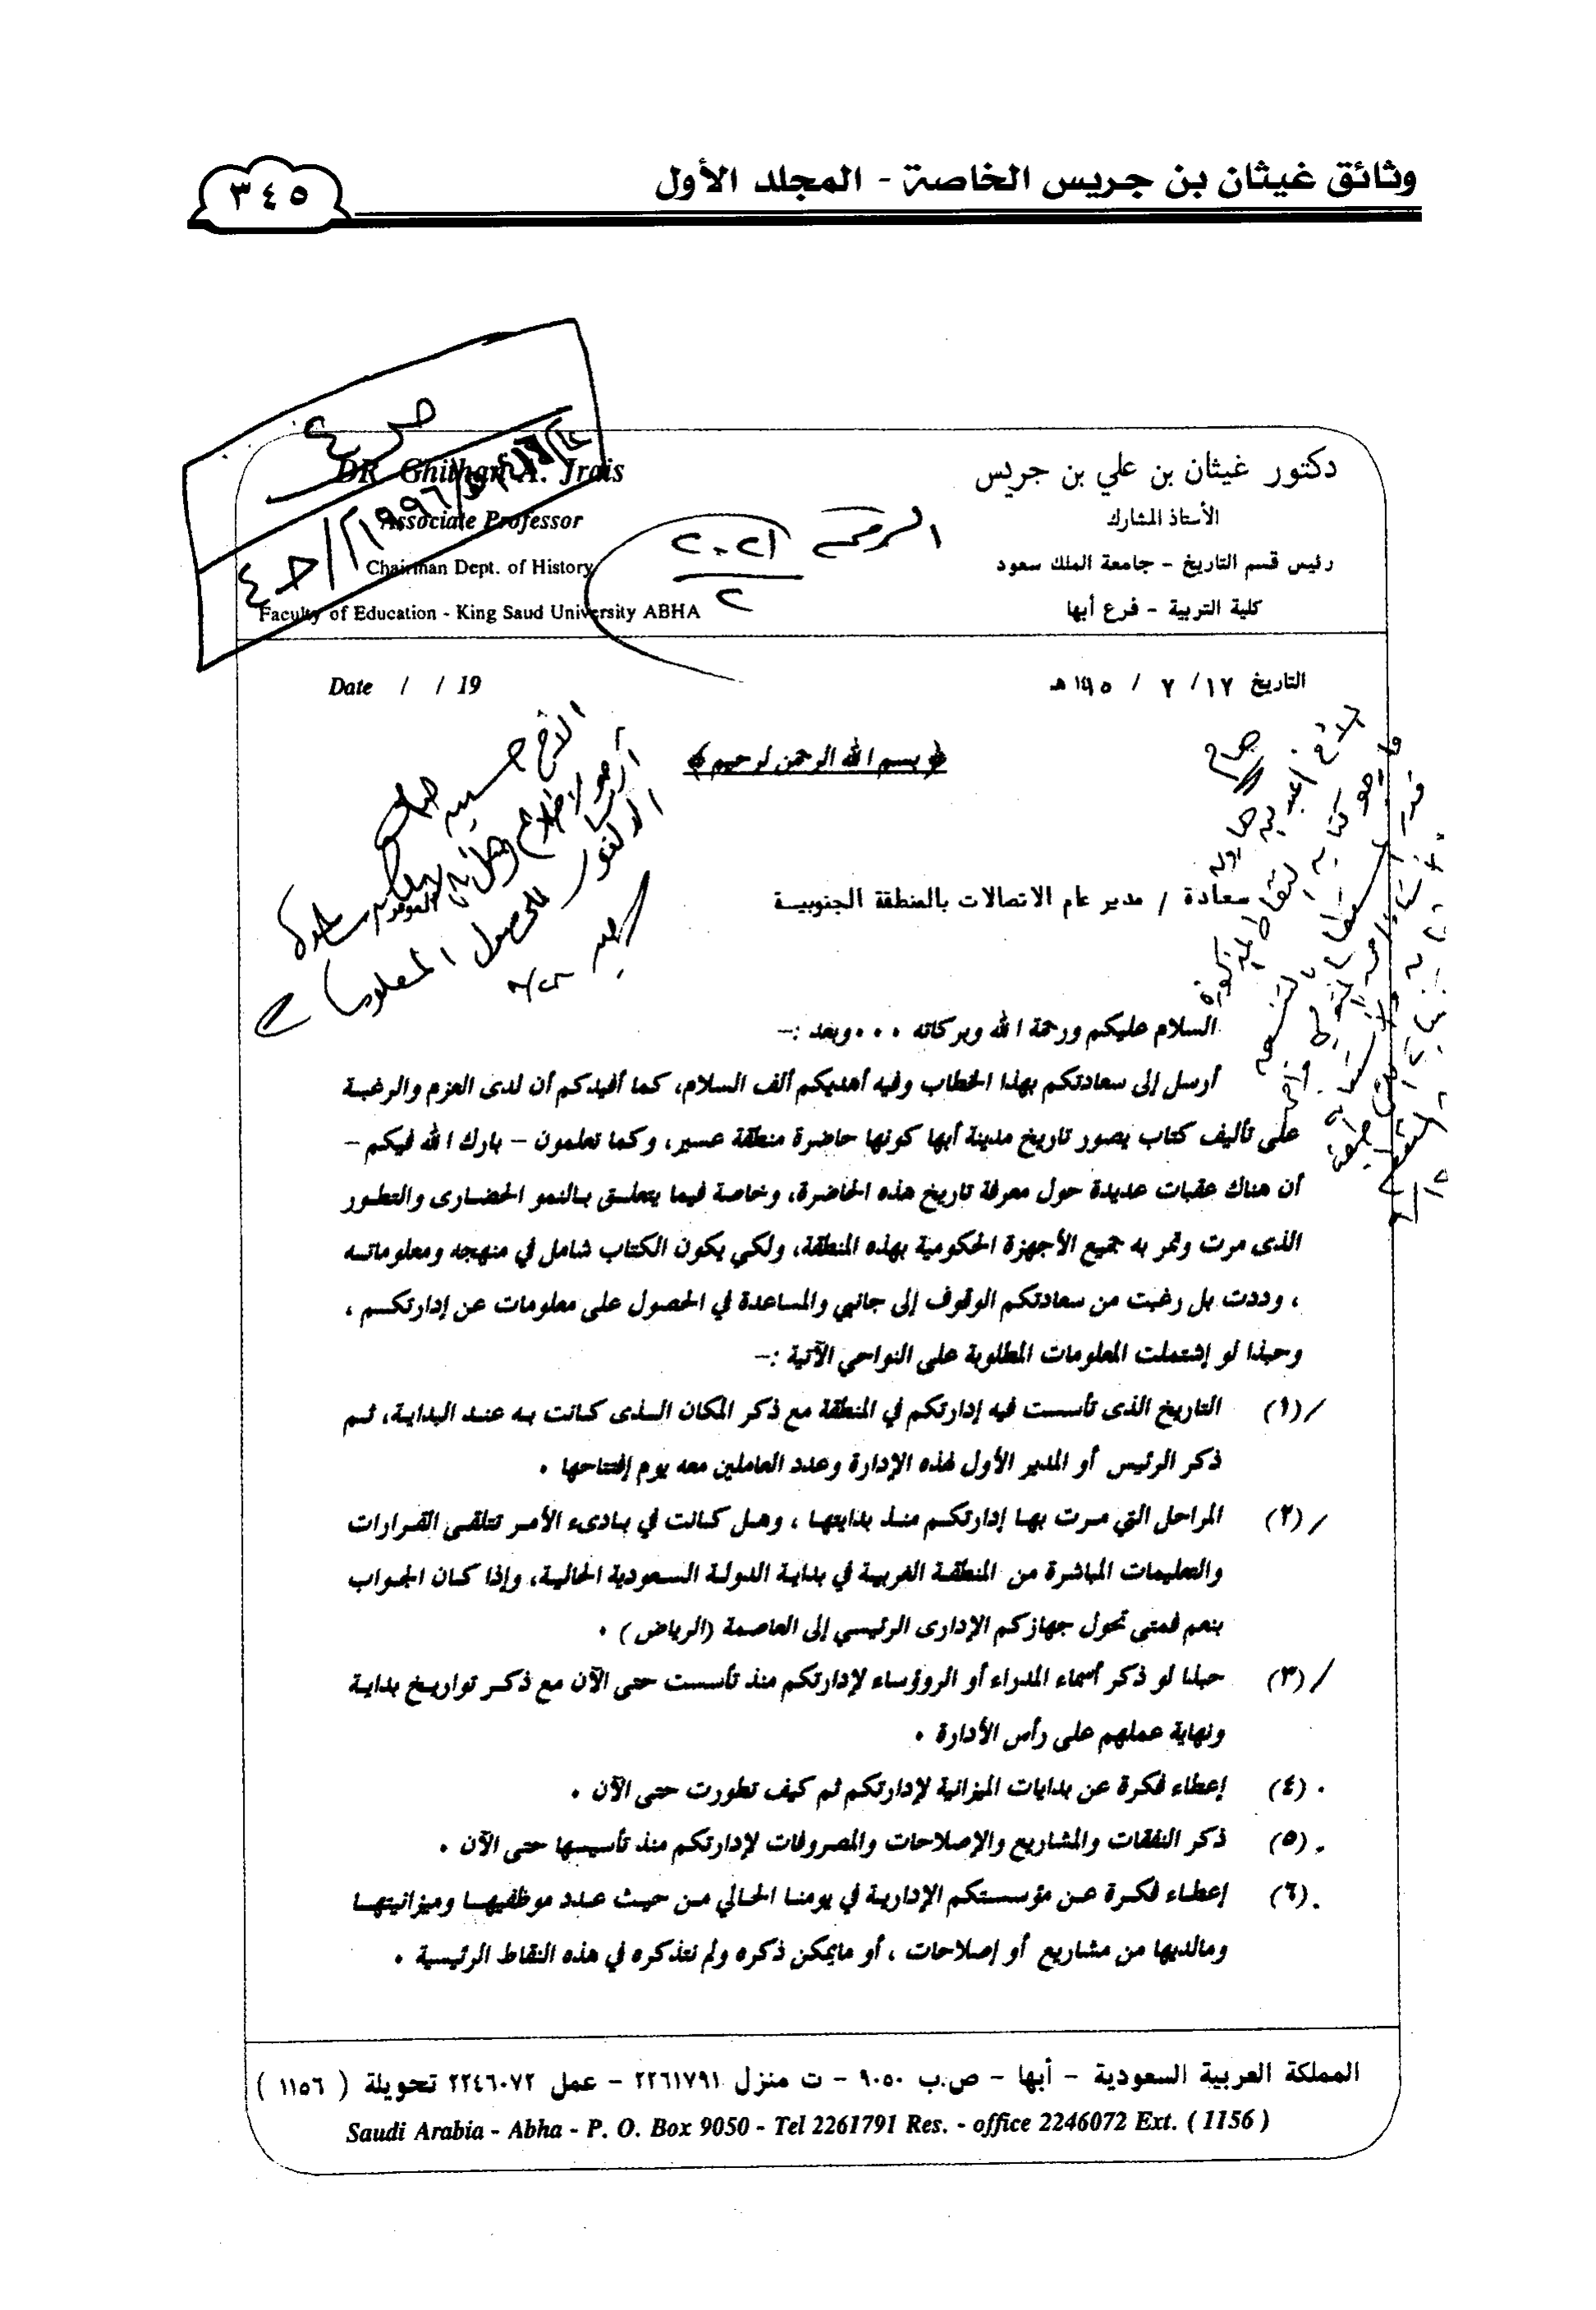 وثائق غيثان بن جريس الخاصة - المجلد الأول
٣٤٥
دكتور غيثان بن علي بن جريس
الأستاذ المشارك
رئيس قسم التاريخ - جامعة الملك سعود
كلية التربية - فرع أبها
DR. Ghithan A. Jrais
Associate Professor
Chairman Dept. of History
Faculty of Education - King Saud University ABHA
التاريخ ١٧ / ٧ / ١٤١٥ هـ
Date / / 19
﴿ بسم الله الرحمن لرحيم ﴾
سعادة / مدير عام الاتصالات بالمنطقة الجنوبية
الموقر
السلام عليكم ورحمة الله وبركاته ٠٠٠ وبعد :-
أرسل إلى سعادتكم بهذا الخطاب وفيه أهديكم ألف السلام، كما أفيدكم أن لدى العزم والرغبة
على تأليف كتاب يصور تاريخ مدينة أبها كونها حاضرة منطقة عسير، وكما تعلمون - بارك الله فيكم -
أن هناك عقبات عديدة حول معرفة تاريخ هذه الحاضرة، وخاصة فيما يتعلق بالنمو الحضارى والتطور
الذى مرت وتمر به جميع الأجهزة الحكومية بهذه المنطقة، ولكي يكون الكتاب شامل في منهجه ومعلوماته
، وددت بل رغبت من سعادتكم الوقوف إلى جانبي والمساعدة في الحصول على معلومات عن إدارتكم ،
وحبذا لو إشتملت المعلومات المطلوبة على النواحي الآتية :-
(١) التاريخ الذى تأسست فيه إدارتكم في المنطقة مع ذكر المكان الذى كانت به عند البداية، ثم
ذكر الرئيس أو المدير الأول لهذه الإدارة وعدد العاملين معه يوم إفتتاحها ٠
(٢) المراحل التي مرت بها إدارتكم منذ بدايتها ، وهل كانت في بادىء الأمر تتلقى القرارات
والتعليمات المباشرة من المنطقة الغربية في بداية الدولة السعودية الحالية، وإذا كان الجواب
بنعم فمتى تحول جهازكم الإدارى الرئيسي إلى العاصمة (الرياض) ٠
(٣) حبذا لو ذكر أسماء المدراء أو الروؤساء لإدارتكم منذ تأسست حتى الآن مع ذكر تواريخ بداية
ونهاية عملهم على رأس الأدارة ٠
(٤) إعطاء فكرة عن بدايات الميزانية لإدارتكم ثم كيف تطورت حتى الآن ٠
(٥) ذكر النفقات والمشاريع والإصلاحات والمصروفات لإدارتكم منذ تأسيسها حتى الآن ٠
(٦) إعطاء فكرة عن مؤسستكم الإدارية في يومنا الحالي من حيث عدد موظفيها وميزانيتها
ومالديها من مشاريع أو إصلاحات ، أو مايمكن ذكره ولم نتذكره في هذه النقاط الرئيسية ٠
المملكة العربية السعودية - أبها - ص.ب ٩٠٥٠ - ت منزل ٢٢٦١٧٩١ - عمل ٢٢٤٦٠٧٢ تحويلة ( ١١٥٦ )
Saudi Arabia - Abha - P. O. Box 9050 - Tel 2261791 Res. - office 2246072 Ext. ( 1156 )